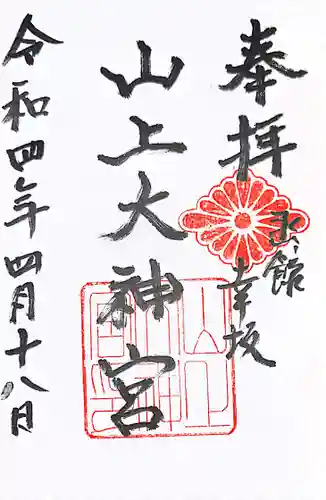 奉拝
函館 幸坂
山上大神宮
令和四年四月十八日